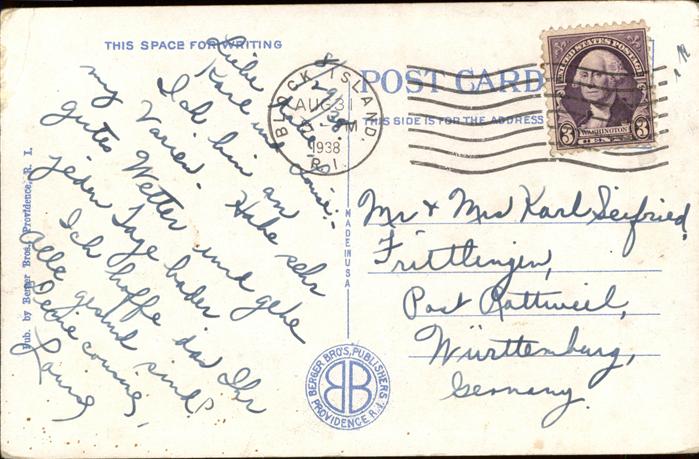 THIS SPACE FOR WRITING
8/29/38
Liebe
Karl und
Ich bin an
my Vacien. Habe sehr
gutes Wetter und gehe
jeden Tage baden
Ich hoffe das Ihr
Alle gesund sind?
Deine cousine,
BLOCK ISLAND.
AUG 31
M
1938
R.I.
POST CARD
THIS SIDE IS FOR THE ADDRESS
UNITED STATES POSTAGE
WASHINGTON
3 CENTS 3
Mr & Mrs Karl Seifried,
Frittlingen,
Post Rottweil,
Württemburg,
Germany.
MADE IN USA
Pub. by Berger Bros., Providence, R. I.
BERGER BRO'S, PUBLISHERS
BB
PROVIDENCE, R.I.